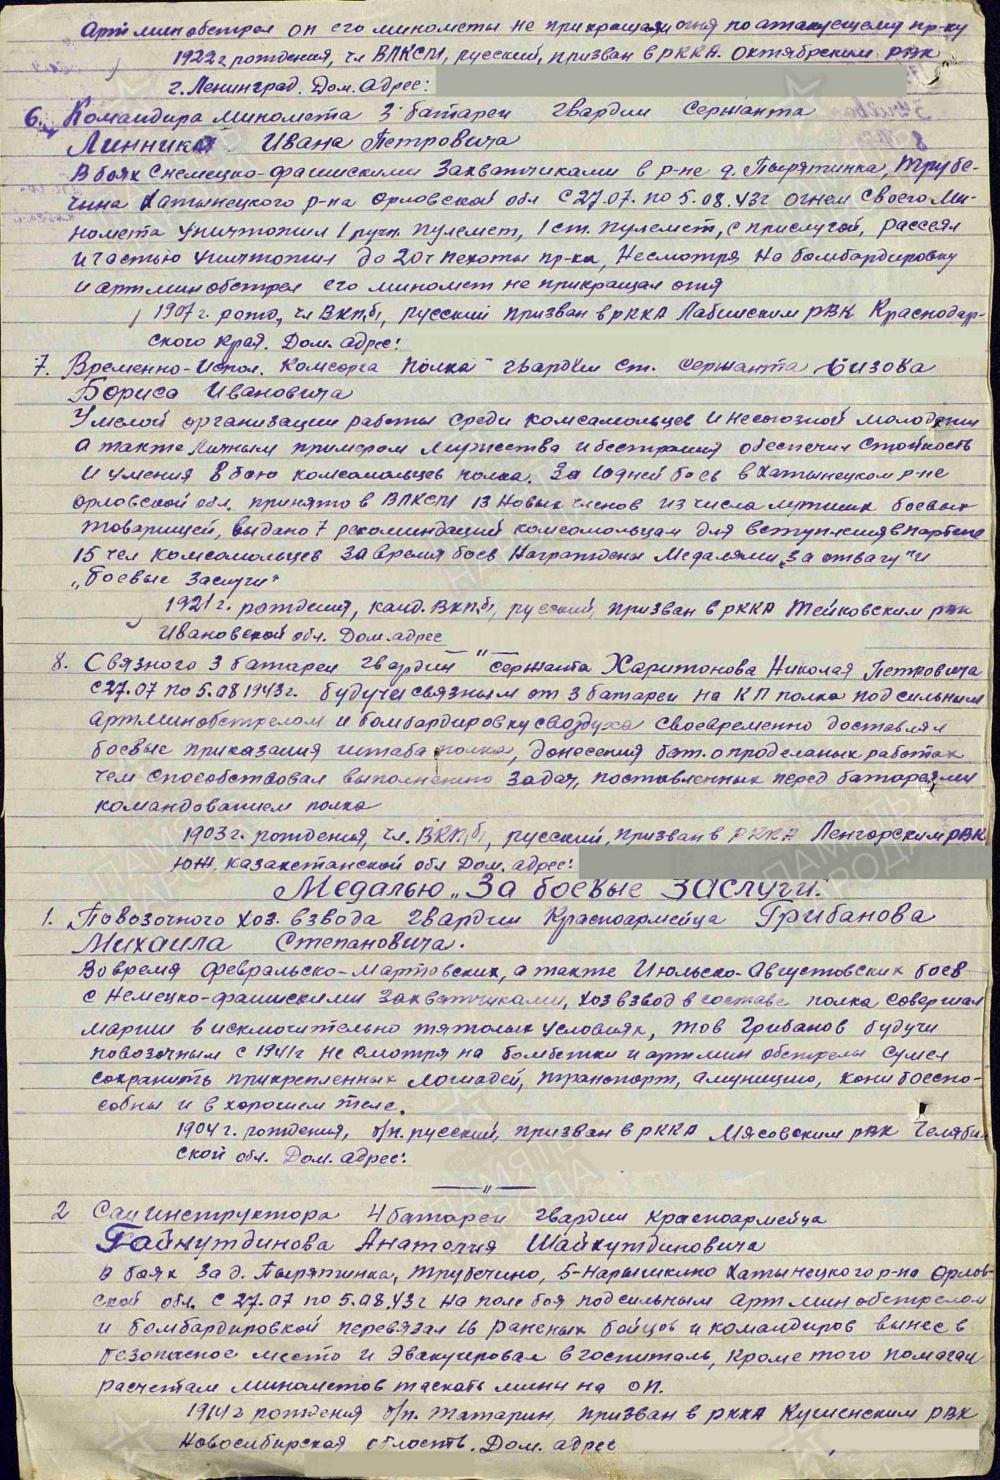 Артминобстрел он его минометы не прикращали огня по атакующему пр-ку
1922 г рождения, чл ВЛКСМ, русский, призван в РККА Октябрьским РВК
г. Ленинград. Дом. Адрес:
6. Командира миномета 3 батареи гвардии Сержанта
Линника Ивана Петровича
В боях с немецко-фашискими Захватчиками в р-не д. Пырятинка, Трубе-
чина Хатынецкого р-на Орловской обл с 27.07. по 5.08.43г огнем своего Ми-
номета уничтожил 1 ручн. пулемет, 1 ст. пулемет, с прислугой, рассеял
и частью уничтожил до 20 ч пехоты пр-ка, Несмотря на бомбардировку
и артминобстрел его миномет не прикращал огня
1907 г. рожд, чл ВКП,б/, русский призван в РККА Лабинским РВК Краснодар-
ского Края. Дом. адрес:
7. Временно-Испол. Комсорга Полка - гвардии ст. сержанта Сизова
Бориса Ивановича
Умелой организации работы среди комсамольцев и несоюзной молодежи
а также Личным примером мужества и бестрашия обеспечил стойкость
и умения в бою комсамольцев полка. За 10 дней боев в Хатынецком р-не
Орловской обл. принято в ВЛКСМ 13 Новых членов из числа лучших боевых
товарищей, выдано 7 рекомендаций комсомольцам для вступления в партию
15 чел комсамольцев за время боев Награждены Медалями „За отвагу" и
„Боевые Заслуги"
1921 г. рождения, канд. ВКП,б/, русский, призван в РККА Тейковским РВК
Ивановской обл. Дом. адрес
— " —
8. Связного 3 батареи гвардии сержанта Харитонова Николая Петровича
с 27.07 по 5.08 1943г. будучи связным от 3 батареи на КП полка под сильным
артминобстрелом и бомбардировку свозduха своевременно доставлял
боевые приказания штаба полка, донесения бат. о проделаных работах
чем способствовал выполнению задач, поставленных перед батареями
командованием полка
1903 г. рождения, чл. ВКП,б/, русский, призван в РККА Ленгорским РВК
Юж. казакстанской обл Дом. адрес:
Медалью „За боевые Заслуги".
1. Повозочного хоз. взвода гвардии Красноармейца Грибанова
Михаила Степановича.
Во время февральско-мартовских, а также Июльско-Августовских боев
с Немецко-фашискими захватчиками, хоз взвод в составе полка совершал
марши в исключительно тяжолых условиях, тов Грибанов будучи
повозочным с 1941г не смотря на бомбежки и артмин обстрелы сумел
сохранить прикрепленных лошадей, транспорт, амуницию, кони боеспо-
собны и в хорошем теле.
1904 г. рождения, б/п. русский, призван в РККА Мясовским РВК Челябин
ской обл. Дом. адрес:
— " —
2 Сан инструктора 4 батареи гвардии красноармейца
Гайнутдинова Анатолия Шайхутдиновича
в боях за д. Пырятинка, Трубечино, Б-Нарышкино Хатынецкого р-на Орлов-
ской обл. с 27.07 по 5.08.43г на поле боя под сильным артминобстрелом
и бомбардировкой перевязал 16 раненых бойцов и командиров вынес в
безопасное место и эвакуировал в госпиталь, кроме того помагал
расчетам минометов таскать мины на ОП.
1914г рождения б/п. татарин, призван в РККА Кушенским РВК
Новосибирская область. Дом. адрес